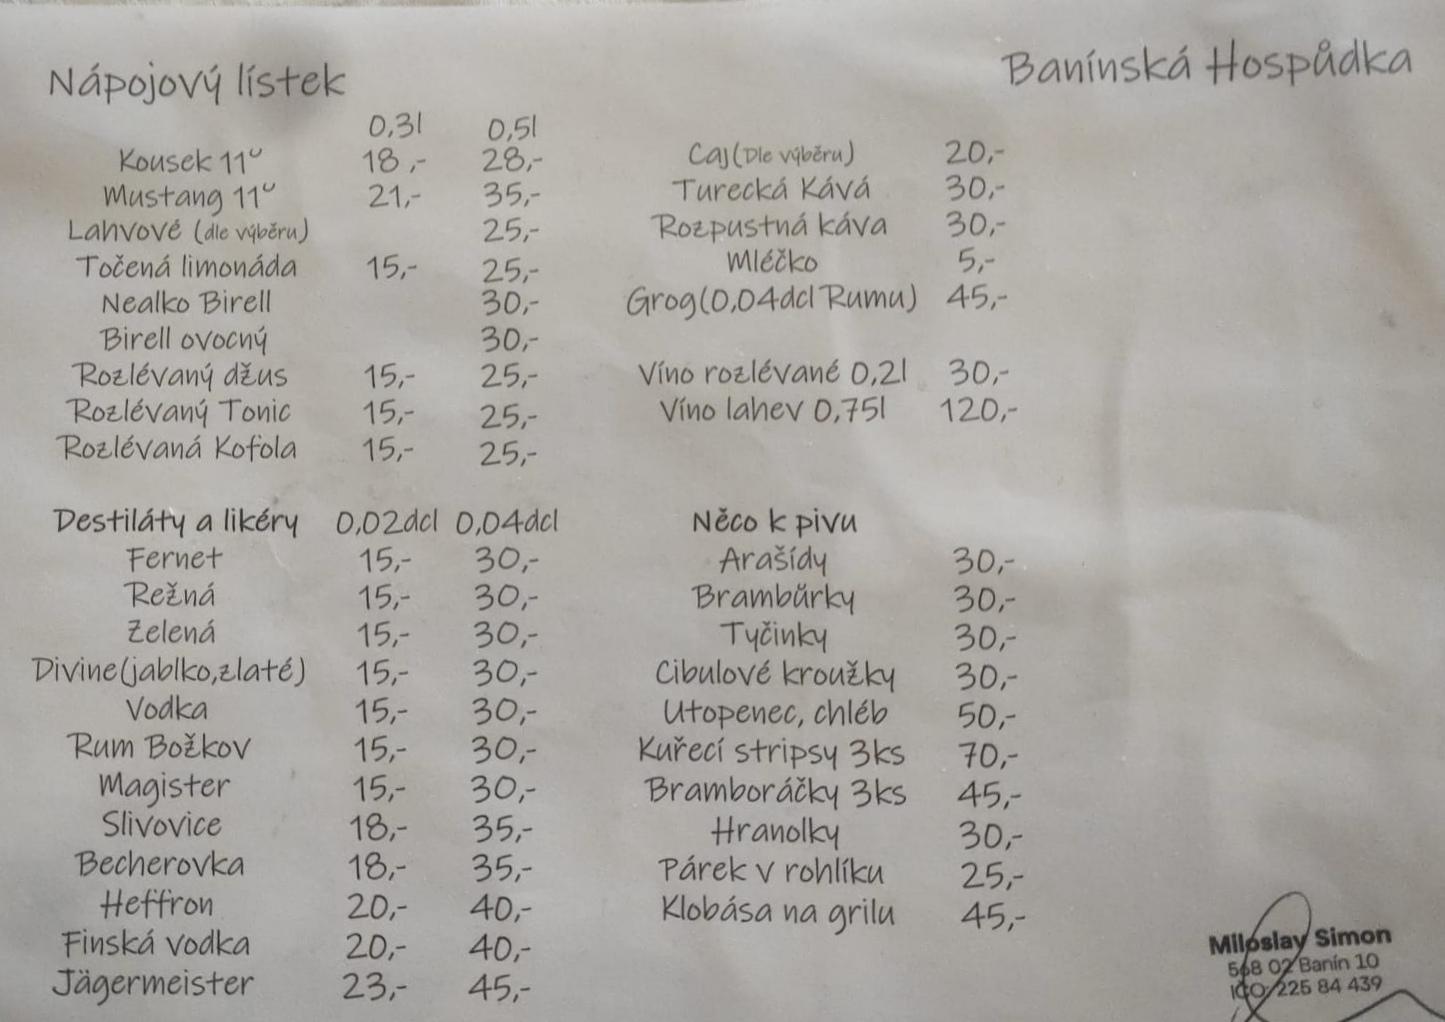 Nápojový lístek
Banínská Hospůdka
0,3l 0,5l
Kousek 11° 18,- 28,-
Mustang 11° 21,- 35,-
Lahvové (dle výběru) 25,-
Točená limonáda 15,- 25,-
Nealko Birell 30,-
Birell ovocný 30,-
Rozlévaný džus 15,- 25,-
Rozlévaný Tonic 15,- 25,-
Rozlévaná Kofola 15,- 25,-
Caj (Dle výběru) 20,-
Turecká Kává 30,-
Rozpustná káva 30,-
Mléčko 5,-
Grog (0,04dcl Rumu) 45,-
Víno rozlévané 0,2l 30,-
Víno lahev 0,75l 120,-
Destiláty a likéry 0,02dcl 0,04dcl
Fernet 15,- 30,-
Režná 15,- 30,-
Zelená 15,- 30,-
Divine(jablko,zlaté) 15,- 30,-
Vodka 15,- 30,-
Rum Božkov 15,- 30,-
Magister 15,- 30,-
Slivovice 18,- 35,-
Becherovka 18,- 35,-
Heffron 20,- 40,-
Finská vodka 20,- 40,-
Jägermeister 23,- 45,-
Něco k pivu
Arašídy 30,-
Brambůrky 30,-
Tyčinky 30,-
Cibulové kroužky 30,-
Utopenec, chléb 50,-
Kuřecí stripsy 3ks 70,-
Bramboráčky 3ks 45,-
Hranolky 30,-
Párek v rohlíku 25,-
Klobása na grilu 45,-
Miloslav Simon
568 02 Banín 10
IČO: 225 84 439